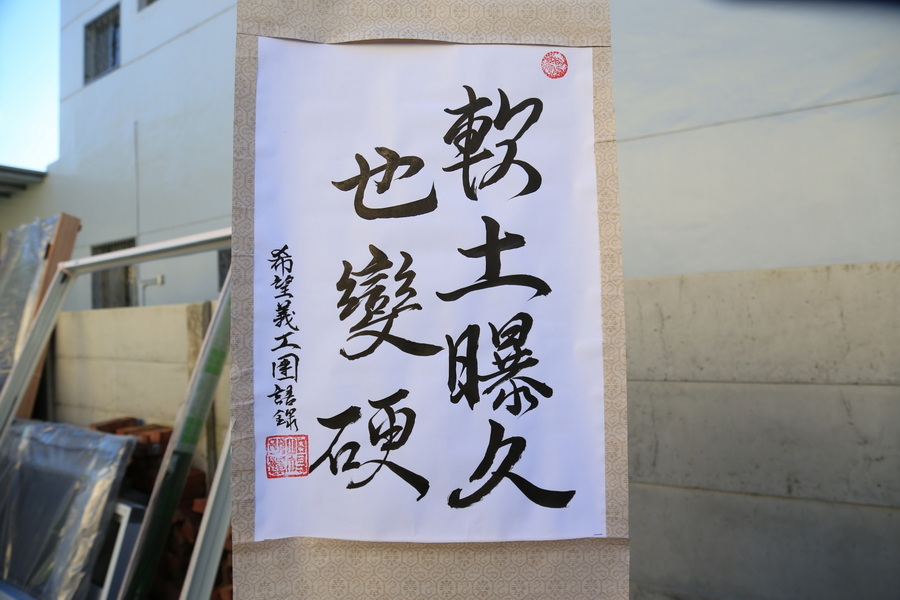 軟土曝久
也變硬
希望義工團語錄